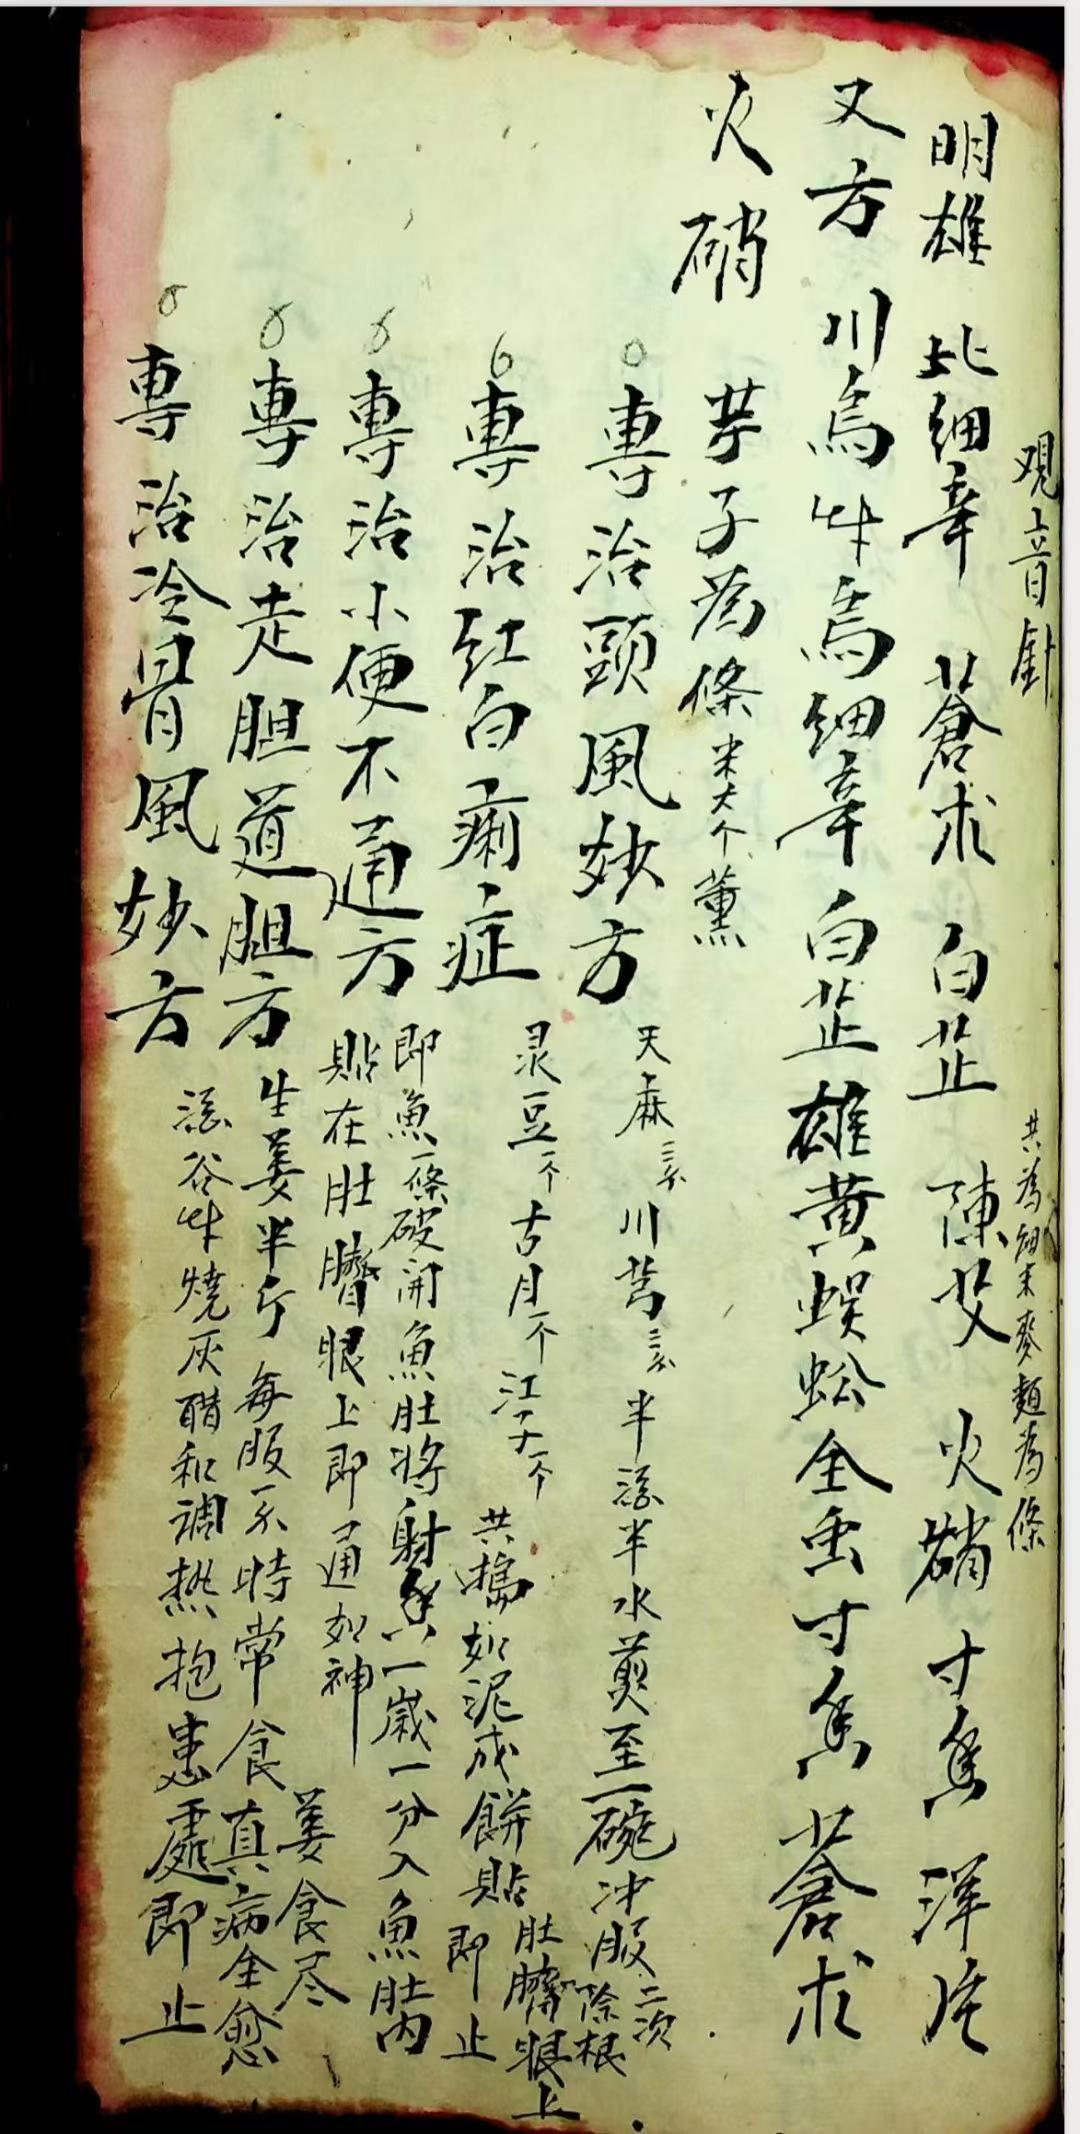 观音針 共為細末麥麵為條
明雄 北細辛 蒼朮 白芷 陳艾 火硝 寸香 洋片
又方 川烏 草烏 細辛 白芷 雄黃 蜈蚣 全虫 寸香 蒼朮
火硝 芥子為條 米大个薰
專治頭風妙方 天麻三錢 川芎三錢 半酒半水煎至一碗冲服二次除根
專治紅白痢症 录豆一个 古月一个 江子一个 共搗如泥成餅貼肚臍眼上即止
專治小便不通方 即魚一條破開魚肚將射香一歲一分入魚肚內
貼在肚臍眼上即通如神
專治走胆道胆方 生姜半斤 每服 時常食姜食尽真病全愈
專治冷骨風妙方 谷草燒灰醋和调热抱患處即止